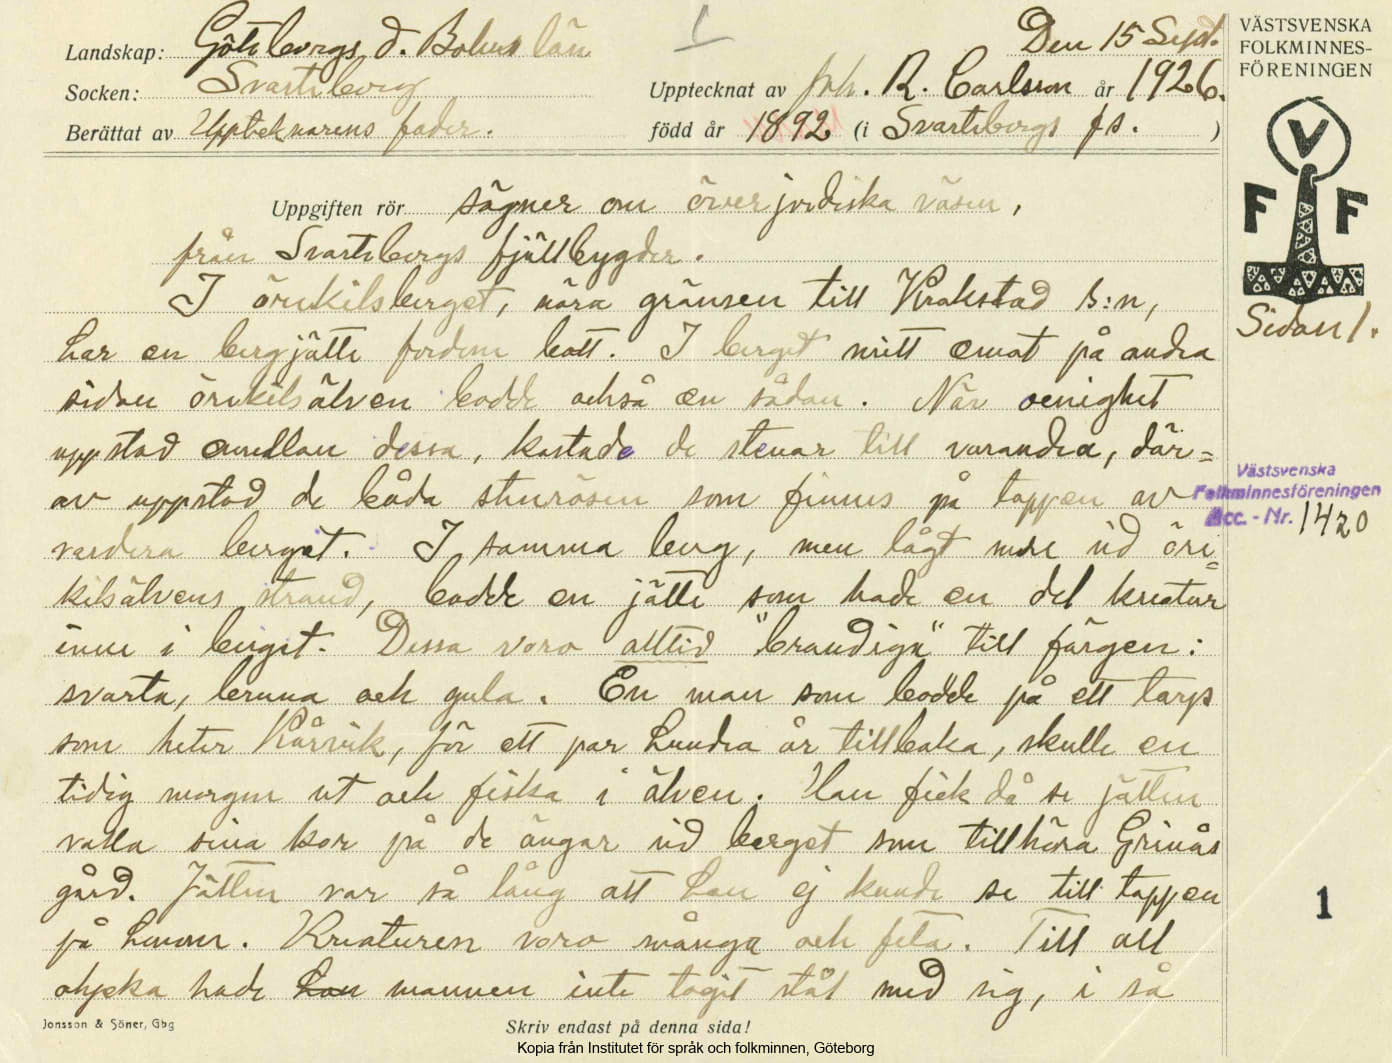 Landskap: Göteborgs o. Bohus län
Den 15 Sept.
Socken: Svarteborg
Upptecknat av Joh. R. Carlsson år 1926.
Berättat av Upptecknarens fader.
född år 1892 (i Svarteborgs fs. )
VÄSTSVENSKA
FOLKMINNES-
FÖRENINGEN
V
F F
Uppgiften rör sägner om överjordiska väsen,
från Svarteborgs fjällbygder.
I örekilsberget, nära gränsen till Krokstad s:n,
har en bergjätte fordom bott. I berget mitt emot på andra
sidan örekilsälven bodde också en sådan. När oenighet
uppstod emellan dessa, kastade de stenar till varandra, där=
av uppstod de båda stenrösen som finnes på toppen av
vardera berget. I samma berg, men lågt nere vid öre=
kilsälvens strand, bodde en jätte som hade en del kreatur
inne i berget. Dessa voro alltid "brandiga" till färgen:
svarta, bruna och gula. En man som bodde på ett torp
som heter Kårvik, för ett par hundra år tillbaka, skulle en
tidig morgon ut och fiska i älven. Han fick då se jätten
valla sina kor på de ängar vid berget som tillhöra Grinås
gård. Jätten var så lång att han ej kunde se till toppen
på honom. Kreaturen voro många och feta. Till all
olycka hade han mannen inte tagit stål med sig, i så
Sidan 1.
Västsvenska
Folkminnesföreningen
Acc. - Nr. 1420
1
Jonsson & Söner, Gbg
Skriv endast på denna sida!
Kopia från Institutet för språk och folkminnen, Göteborg